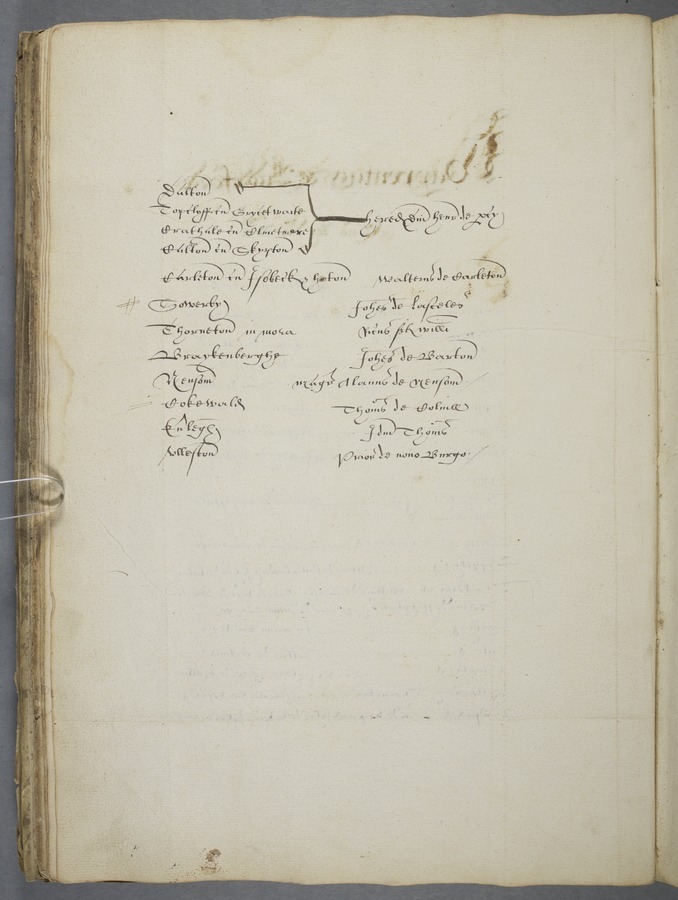 Dalton
Topclyff cu Gristwaite
Crakhale cu Elmetmere
Catton cu Skypton
hered dni henr de p'cy
Carleton cu Isebeck & heton Walterus de Carleton
Sowerby Johes de Lasceles
Thorneton in mora Ricus fil willi
Braykenberghe Johes de Barton
Neusom magr Alanus de Neusom
Cokewald Thoms de Colvill
Idm Thoms
Ulleston Prior de novo Burgo